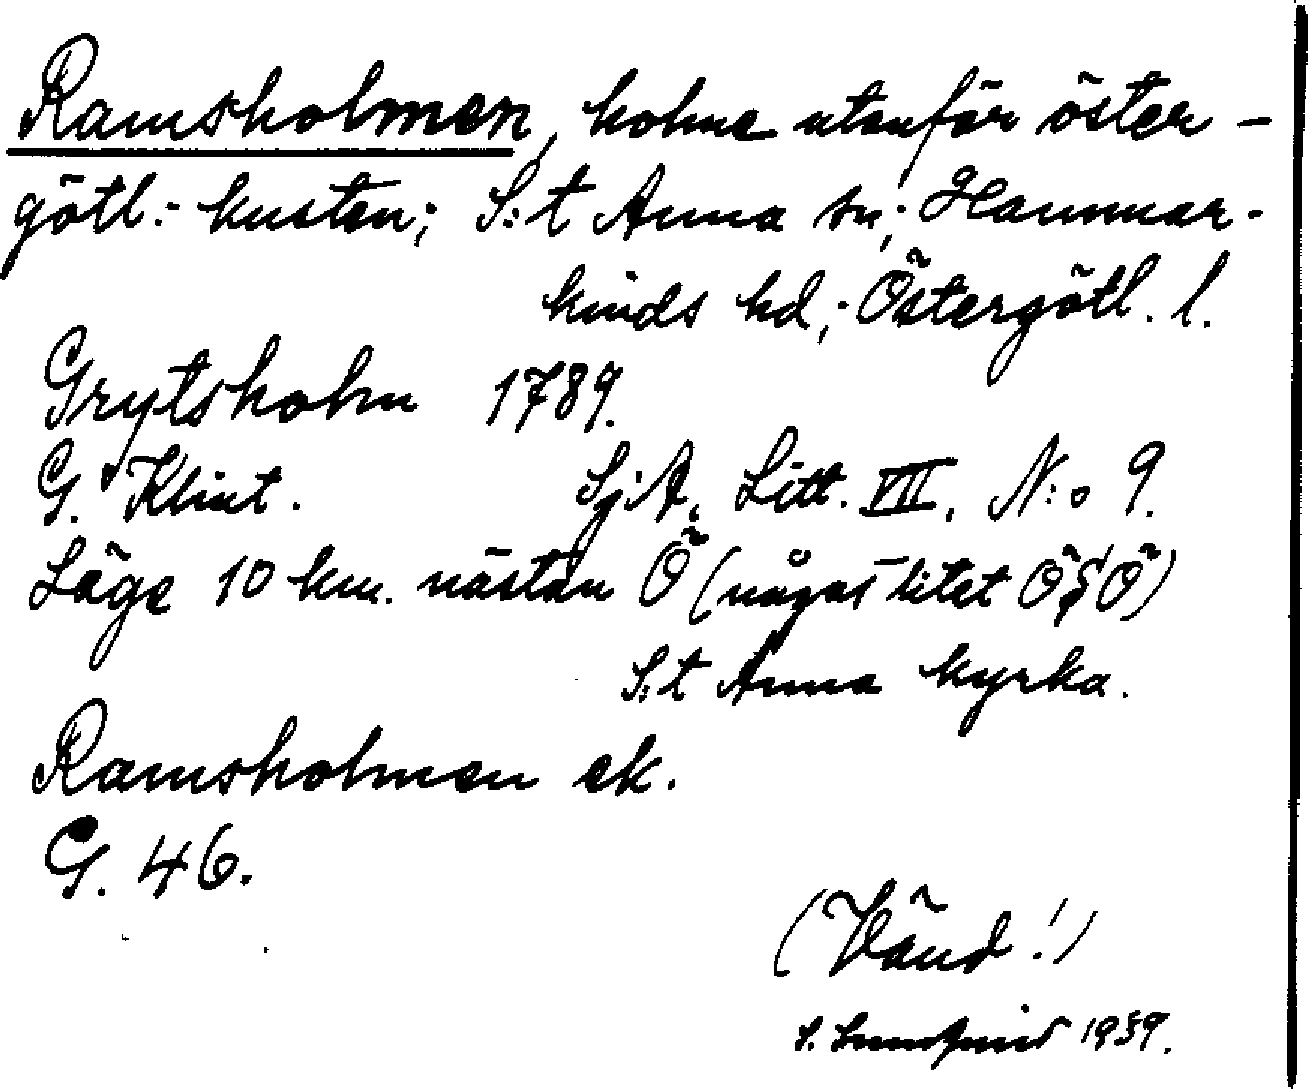 Ramsholmen, holme utanför öster-
götl:- kusten; S:t Anna sn; Hammar-
kinds hd; Östergötl. l.
Grytsholm 1789.
G. Klint. SjA. Litt. VII. N:o 9.
Läge 10 km. nästan Ö (något litet ÖSÖ)
S:t Anna kyrka.
Ramsholmen ek.
G. 46.
(Vänd!)
S. 1939.